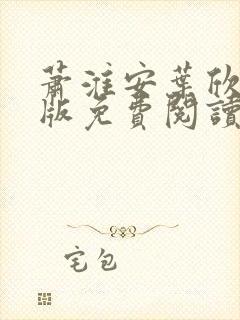 蕭淮安葉欣
版免費閱讀
宅包